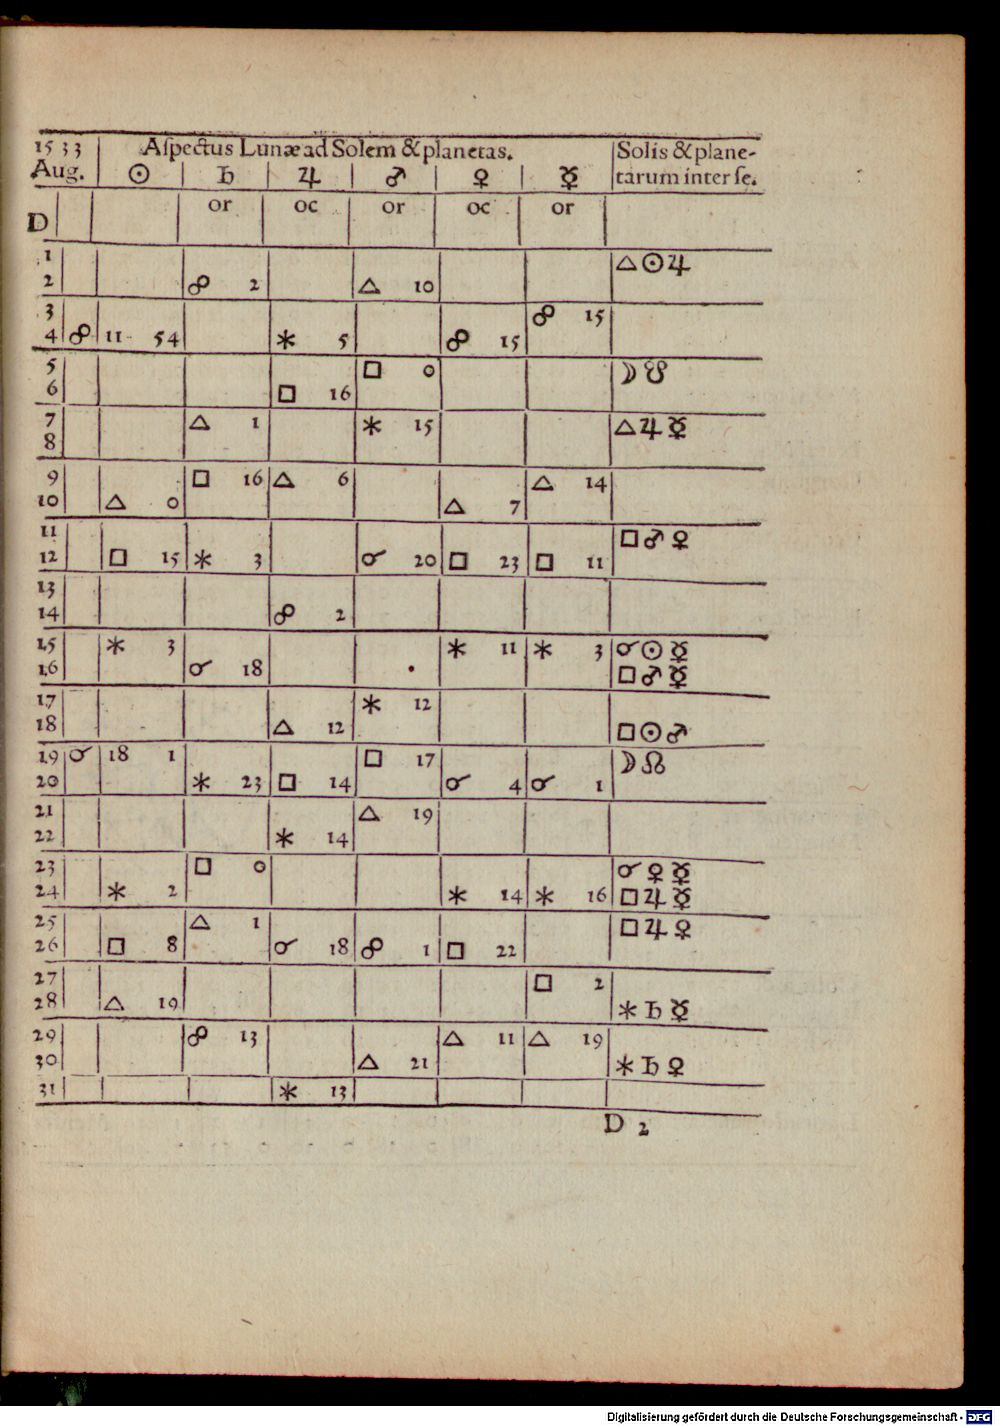 1533 Aſpectus Lunæ ad Solem & planetas. Solis & plane-
Aug. ☉ ♄ ♃ ♂ ♀ ☿ tarum inter ſe.
or oc or oc or
D
1 △☉♃
2 ☍ 2 △ 10
3 ☍ 15
4 ☍ 11 54 ⚹ 5 ☍ 15
5 □ 0 ☽☋
6 □ 16
7 △ 1 ⚹ 15 △♃☿
8
9 □ 16 △ 6 △ 14
10 △ 0 △ 7
11 □♂♀
12 □ 15 ⚹ 3 ☌ 20 □ 23 □ 11
13
14 ☍ 2
15 ⚹ 3 ⚹ 11 ⚹ 3 ☌☉☿
16 ☌ 18 □♂☿
17 ⚹ 12
18 △ 12 □☉♂
19 ☌ 18 1 □ 17 ☽☊
20 ⚹ 23 □ 14 ☌ 4 ☌ 1
21 △ 19
22 ⚹ 14
23 □ 0 ☌♀☿
24 ⚹ 2 ⚹ 14 ⚹ 16 □♃☿
25 △ 1 □♃♀
26 □ 8 ☌ 18 ☍ 1 □ 22
27 □ 2
28 △ 19 ⚹♄☿
29 ☍ 13 △ 11 △ 19
30 △ 21 ⚹♄♀
31 ⚹ 13
D 2
Digitalisierung gefördert durch die Deutsche Forschungsgemeinschaft - DFG